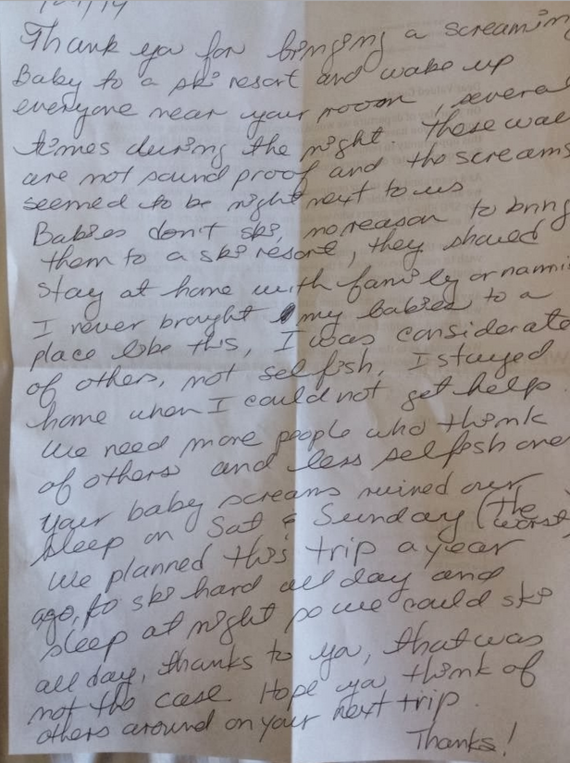 Thank you for bringing a screaming
Baby to a ski resort and wake up
everyone near your room, several
times during the night These wal
are not sound proof and the screams
seemed to be right next to us
Babies don't ski, no reason to bring
them to a ski resort, they should
stay at home with family or nanni
I never brought my babies to a
place like this, I was considerate
of others, not selfish. I stayed
home when I could not get help.
We need more people who think
of others and less selfish one
your baby screams ruined our
sleep on Sat & Sunday (The worst)
We planned this trip a year
ago, to ski hard all day and
sleep at night so we could ski
all day, thanks to ya, that was
not the case Hope ya think of
others around on your next trip.
Thanks!